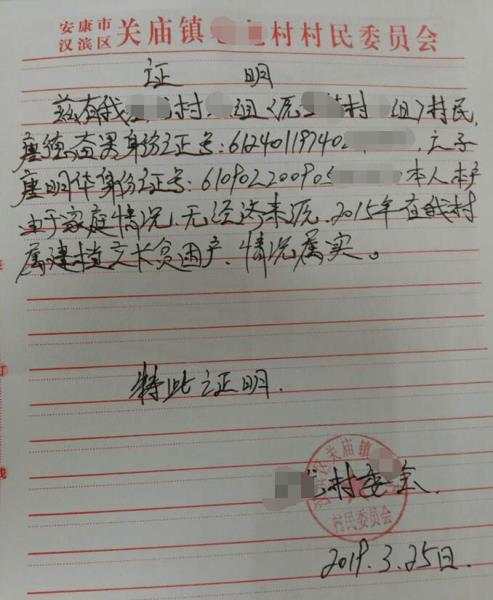 安康市
汉滨区 关庙镇 村村民委员会
证 明
兹有我 村 组(原 村 组)村民,
唐德斋男身份证号:61240119740 之子
唐明华身份证号:61090220090 本人本户
由于家庭情况、无经济来源,2015年在我村
属建档立卡贫困户、情况属实。
特此证明.
村委会.
关庙镇
村民委员会
2019.3.25日.